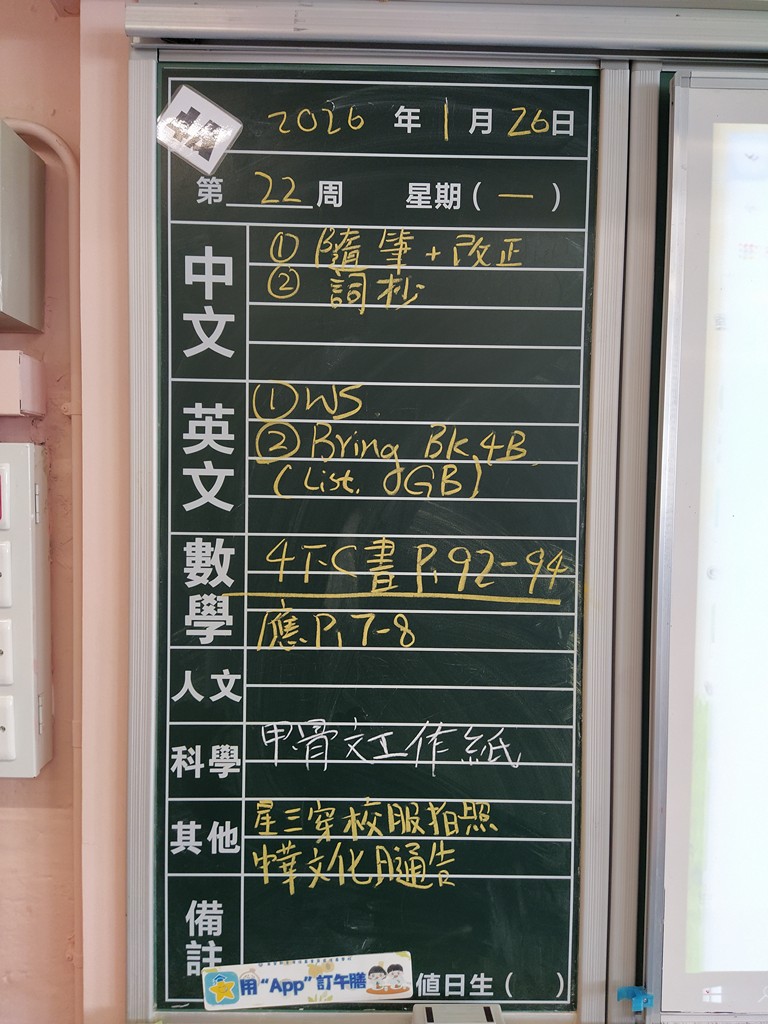 2026 年 1 月 26 日
第 22 周 星期 ( 一 )
中文
① 隨筆 + 改正
② 詞抄
英文
① WS
② Bring BK 4B
(List. & GB)
數學
4下C書 P.92-94
應 P.7-8
人文
科學
甲骨文工作紙
其他
星三穿校服拍照
中華文化月通告
備註
用 "App" 訂午膳
值日生 ( )